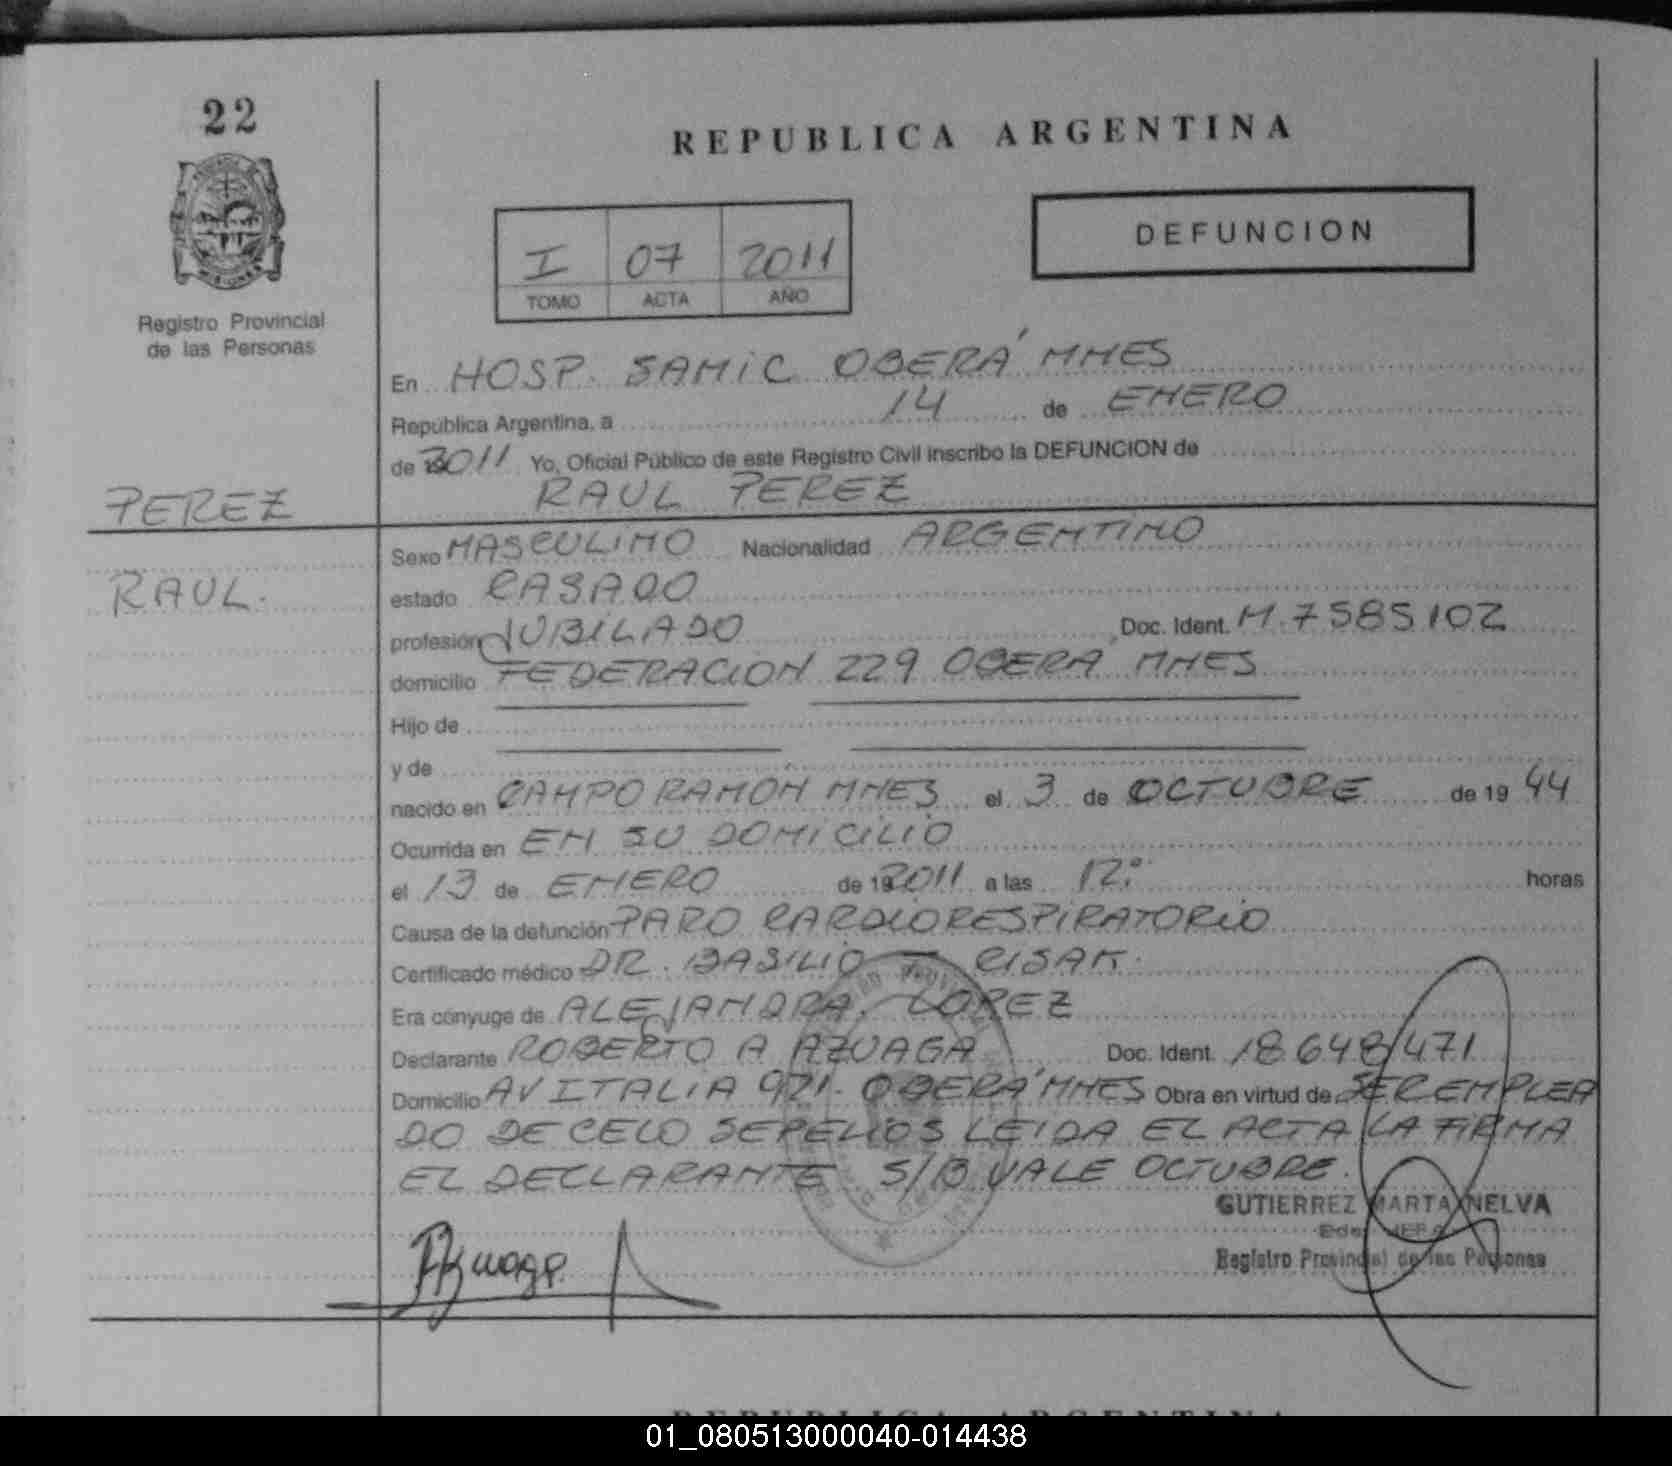 22
REPUBLICA ARGENTINA
I 07 2011
TOMO ACTA AÑO
DEFUNCION
MISIONES
Registro Provincial
de las Personas
En HOSP. SAMIC OBERÁ MNES
República Argentina, a 14 de ENERO
de 2011 Yo, Oficial Público de este Registro Civil inscribo la DEFUNCION de
RAUL PEREZ
PEREZ
RAUL.
Sexo MASCULINO Nacionalidad ARGENTINO
estado CASADO
profesión JUBILADO Doc. Ident. M. 7585102
domicilio FEDERACION 229 OBERÁ MNES
Hijo de
y de
nacido en CAMPO RAMON MNES el 3 de OCTUBRE de 19 44
Ocurrida en EN SU DOMICILIO
el 13 de ENERO de 192011 a las 12: horas
Causa de la defunción PARO CARDIORESPIRATORIO
Certificado médico DR. BASILIO RISAK.
Era cónyuge de ALEJANDRA LOPEZ
Declarante ROBERTO A AZUAGA Doc. Ident. 18648471
Domicilio AV ITALIA 921. OBERÁ MNES Obra en virtud de SER EMPLEA
DO DE CELO SEPELIOS LEIDA EL ACTA LA FIRMA
EL DECLARANTE S/B VALE OCTUBRE.
GUTIERREZ MARTA NELVA
JEFA
Registro Provincial de las Personas
REPUBLICA ARGENTINA
01_080513000040-014438